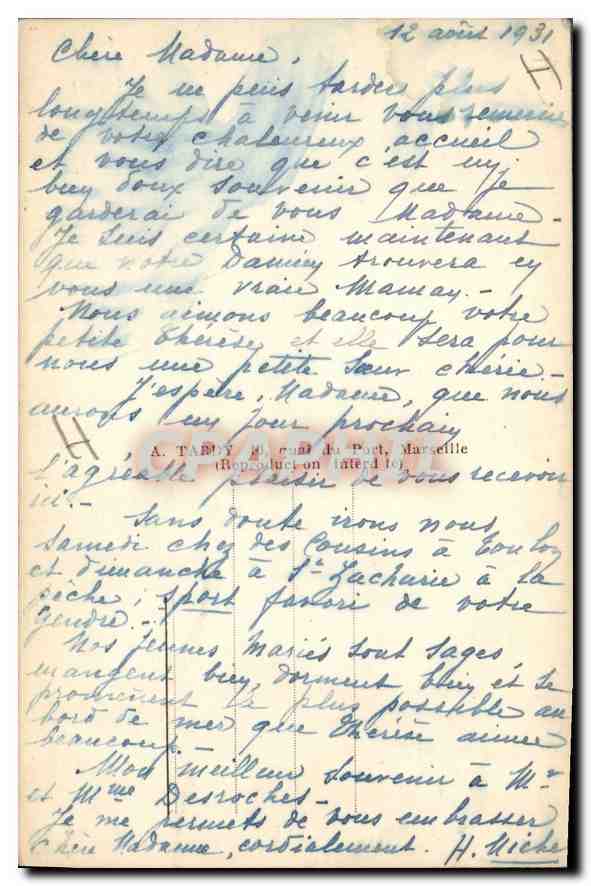 12 août 1931
Chère Madame,
H
Je ne puis tarder plus
longtemps à venir vous remercier
de votre chaleureux accueil
et vous dire que c'est un
bien doux souvenir que je
garderai de vous Madame -
Je suis certaine maintenant
que notre Damien trouvera en
vous une vraie Maman. -
Nous aimons beaucoup votre
petite Thérèse, et elle sera pour
nous une petite sœur chérie. -
J'espère, Madame, que nous
aurons un jour prochain
H
A. TARDY, quai du Port, Marseille
(Reproduction interdite)
l'agréable plaisir de vous recevoir
ici. -
Sans doute irons nous
samedi chez des Cousins à Toulon
et dimanche à St Zacharie à la
pêche, sport favori de votre
gendre. -
Nos jeunes mariés sont sages
mangent bien, dorment bien et se
promènent le plus possible au
bord de mer que Thérèse aime
beaucoup.
Mon meilleur souvenir à Mr
et Mme Desroches -
Je me permets de vous embrasser
Chère Madame, cordialement. H. Miche
CPARAMA